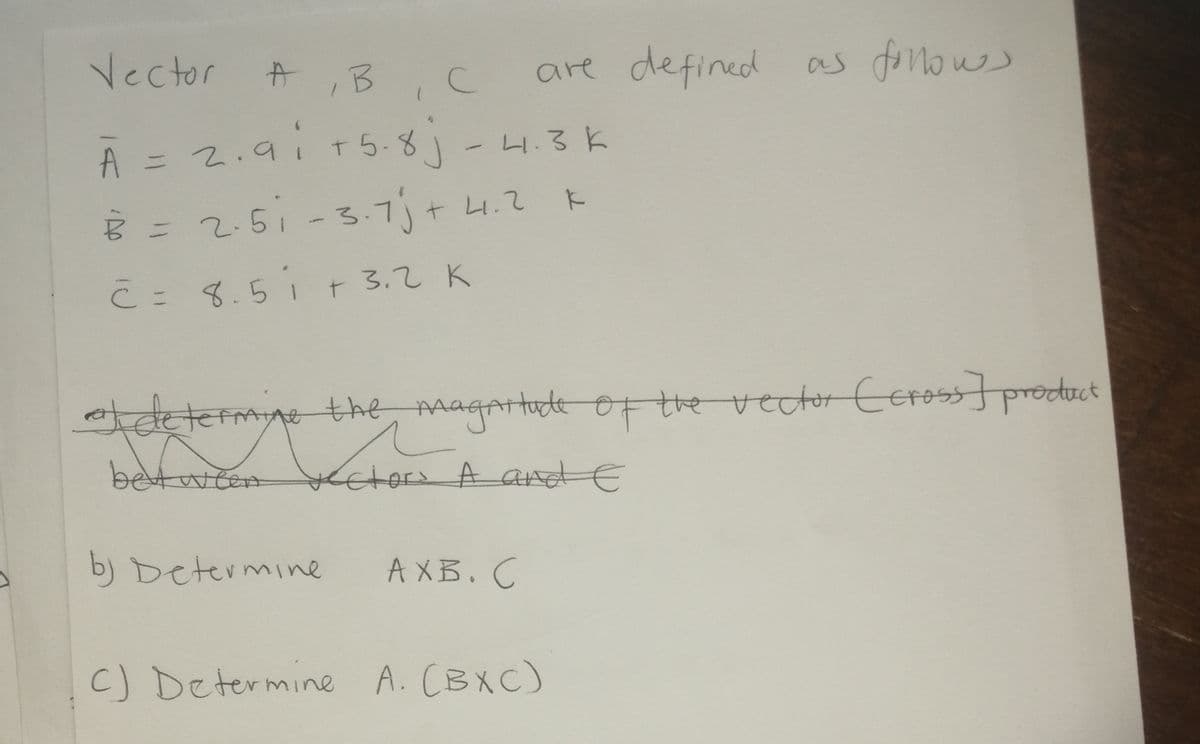 Vector A , B , C are defined as follows
Ā = 2.9i + 5.8j - 4.3 k
B̄ = 2.5i - 3.7j + 4.2 k
C̄ = 8.5 i + 3.2 K
a) determine the magnitude of the vector (cross] product
between vectors A and C
b) Determine A X B . C
C) Determine A. (BXC)